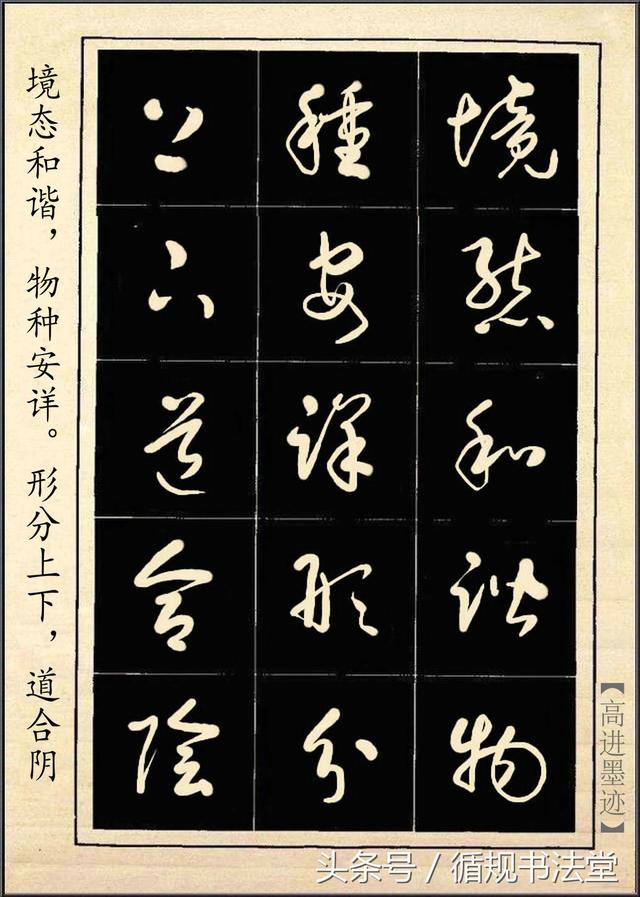 境態和谐物
種安详形分
上下道合陰
境态和谐，物种安详。形分上下，道合阴
【高进墨迹】
头条号 / 循规书法堂